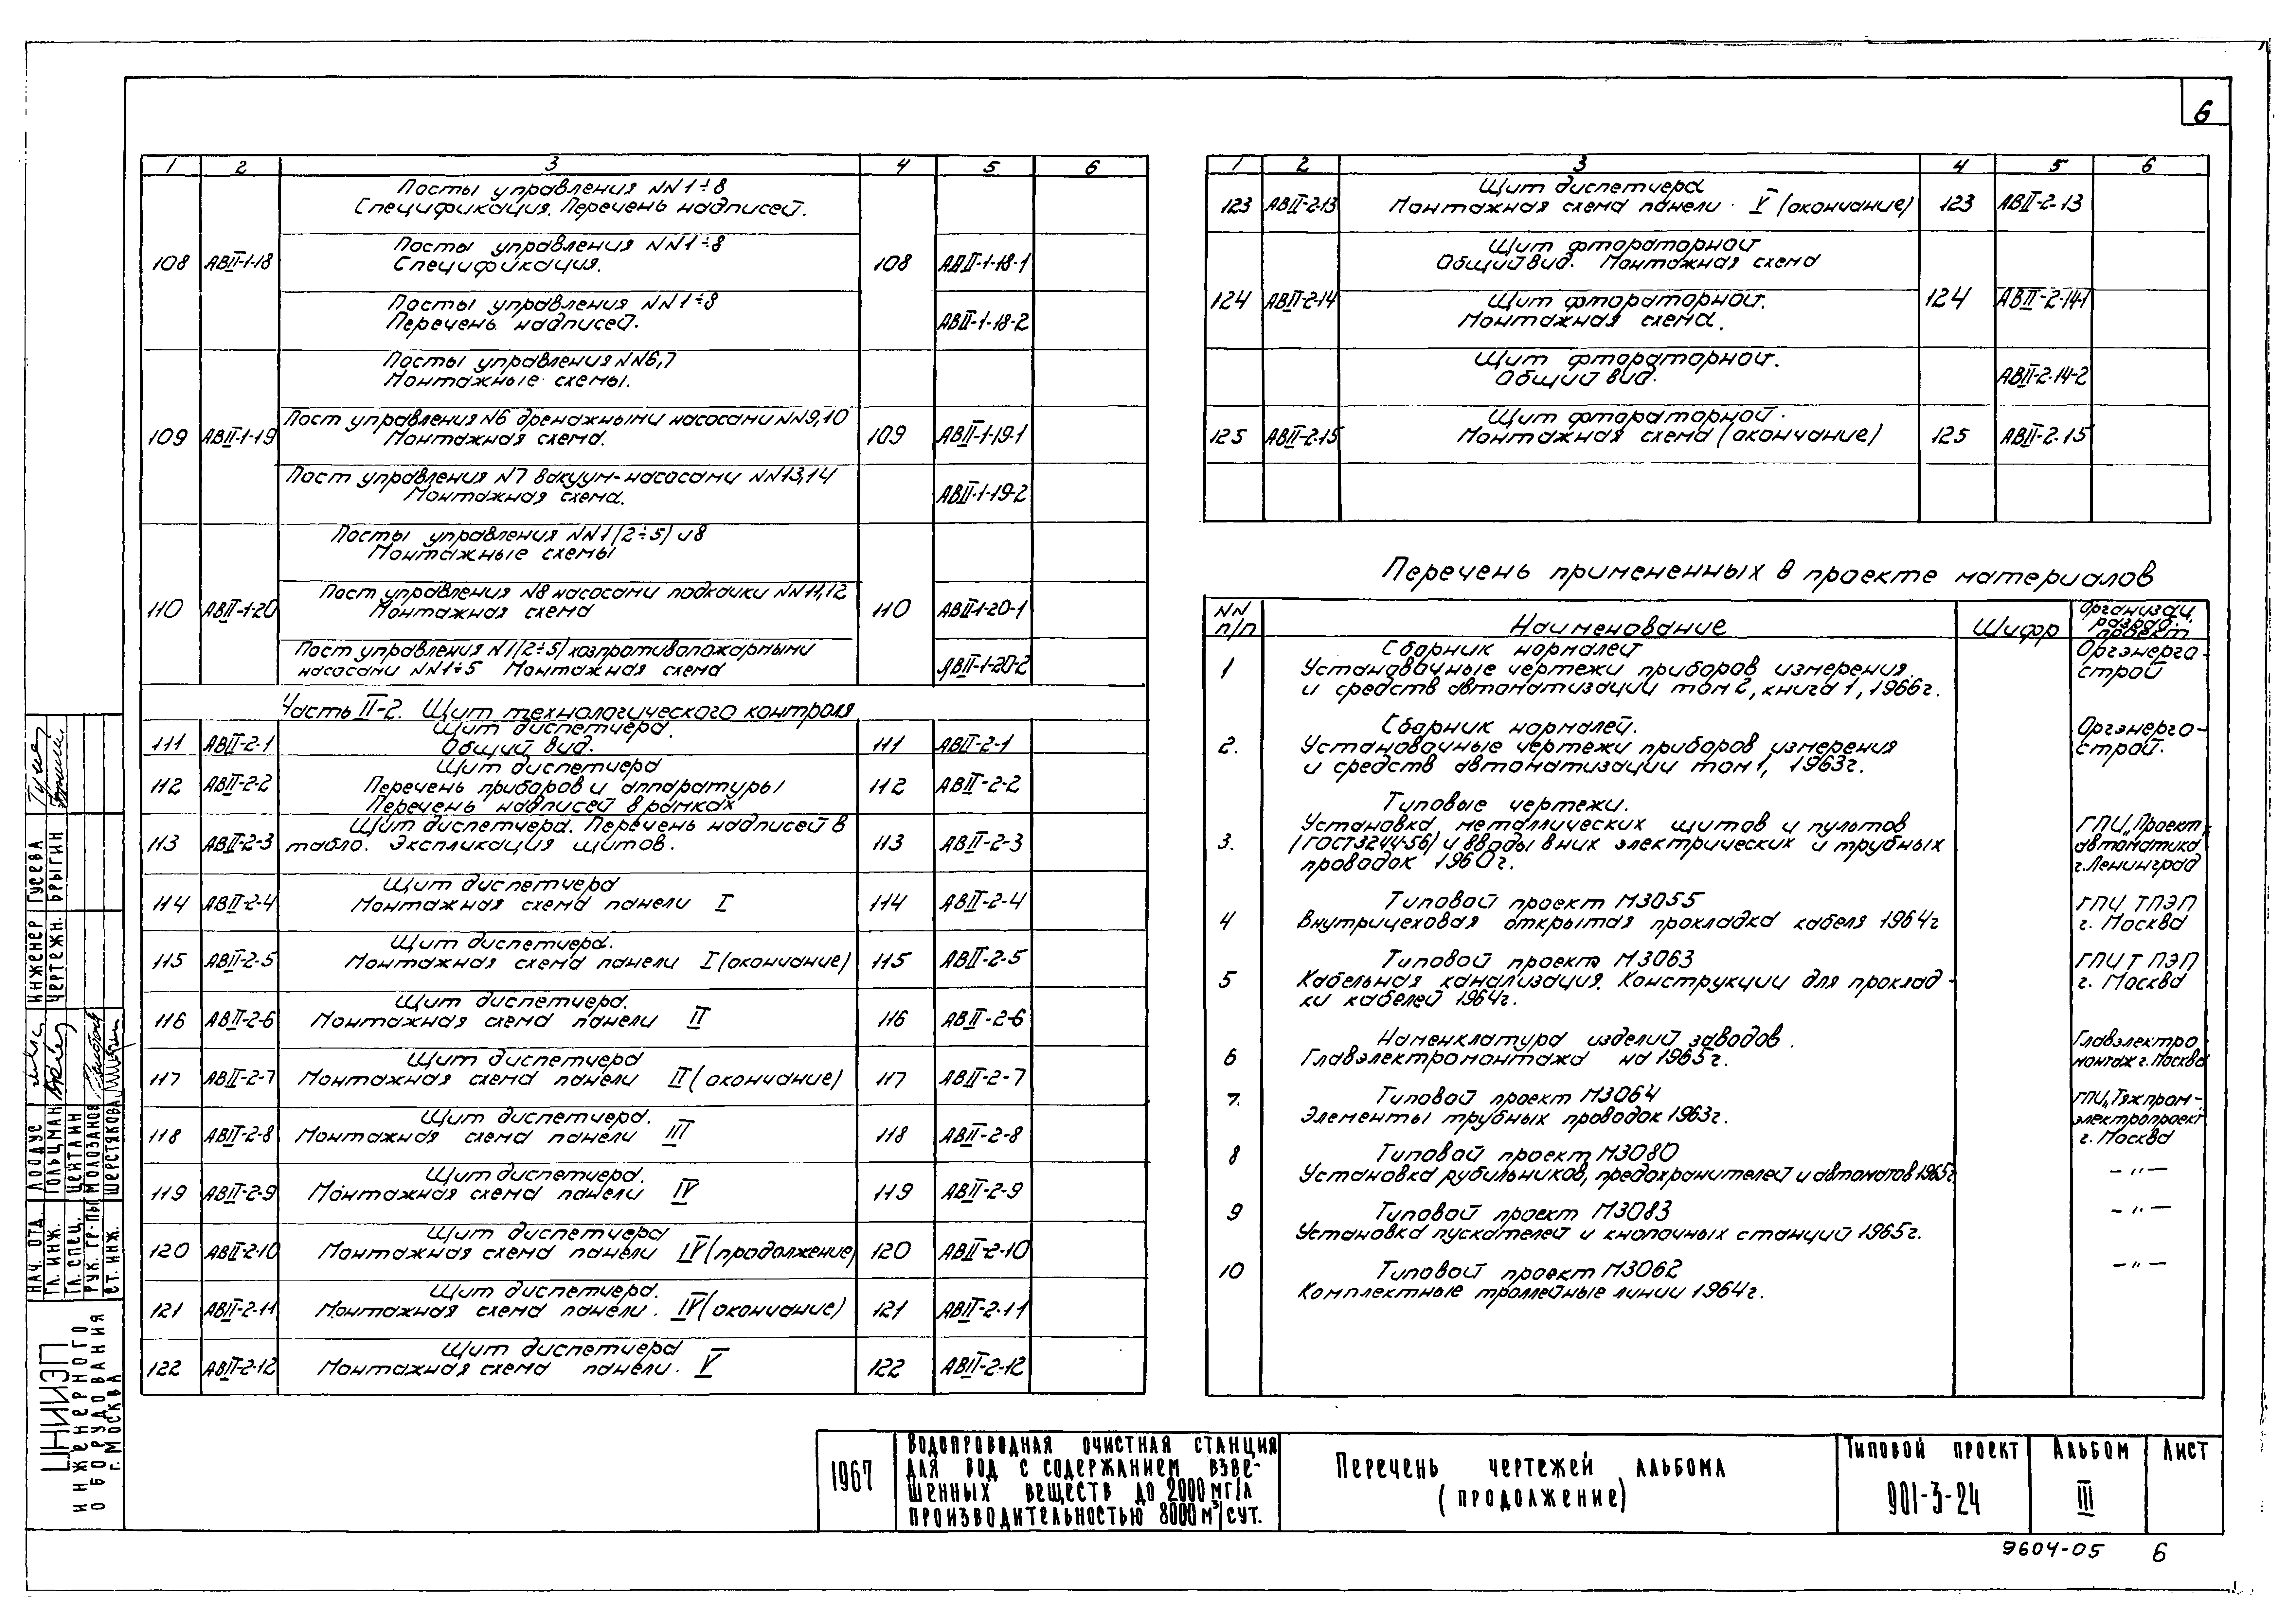 6
1 2 3 4 5 6
Посты управления NN1÷8
Спецификация. Перечень надписей.
Посты управления NN1÷8
108 АВII-1-18 Спецификация. 108 АВII-1-18-1
Посты управления NN1÷8
Перечень надписей. АВII-1-18-2
Посты управления NN6,7
Монтажные схемы.
Пост управления N6 дренажными насосами NN9,10
109 АВII-1-19 Монтажная схема. 109 АВII-1-19-1
Пост управления N7 вакуум-насосами NN13,14
Монтажная схема. АВII-1-19-2
Посты управления NN1(2÷5) и 8
Монтажные схемы
Пост управления N8 насосами подкачки NN11,12
110 АВII-1-20 Монтажная схема 110 АВII-1-20-1
Пост управления N1(2÷5) хозпротивопожарными
насосами NN1÷5 Монтажная схема АВII-1-20-2
Часть II-2. Щит технологического контроля
Щит диспетчера.
111 АВII-2-1 Общий вид. 111 АВII-2-1
Щит диспетчера
112 АВII-2-2 Перечень приборов и аппаратуры 112 АВII-2-2
Перечень надписей в рамках
Щит диспетчера. Перечень надписей в
113 АВII-2-3 табло. Экспликация щитов. 113 АВII-2-3
Щит диспетчера
114 АВII-2-4 Монтажная схема панели I 114 АВII-2-4
Щит диспетчера.
115 АВII-2-5 Монтажная схема панели I (окончание) 115 АВII-2-5
Щит диспетчера.
116 АВII-2-6 Монтажная схема панели II 116 АВII-2-6
Щит диспетчера
117 АВII-2-7 Монтажная схема панели II (окончание) 117 АВII-2-7
Щит диспетчера.
118 АВII-2-8 Монтажная схема панели III 118 АВII-2-8
Щит диспетчера.
119 АВII-2-9 Монтажная схема панели IV 119 АВII-2-9
Щит диспетчера
120 АВII-2-10 Монтажная схема панели IV (продолжение) 120 АВII-2-10
Щит диспетчера.
121 АВII-2-11 Монтажная схема панели. IV (окончание) 121 АВII-2-11
Щит диспетчера
122 АВII-2-12 Монтажная схема панели. V 122 АВII-2-12
1 2 3 4 5 6
Щит диспетчера
123 АВII-2-13 Монтажная схема панели V (окончание) 123 АВII-2-13
Щит фтораторной
Общий вид. Монтажная схема
124 АВII-2-14 Щит фтораторной. 124 АВII-2-14-1
Монтажная схема.
Щит фтораторной.
Общий вид. АВII-2-14-2
Щит фтораторной.
125 АВII-2-15 Монтажная схема (окончание) 125 АВII-2-15
Перечень примененных в проекте материалов
NN п/п Наименование Шифр Организац. разраб. проект
Сборник нормалей Оргэнерго-
1 Установочные чертежи приборов измерения строй
и средств автоматизации том 2, книга 1, 1966г.
Сборник нормалей. Оргэнерго-
2. Установочные чертежи приборов измерения строй.
и средств автоматизации том 1, 1963г.
Типовые чертежи.
Установка металлических щитов и пультов ГПИ „Проект
3. (ГОСТ3244-56) и вводы в них электрических и трубных автоматика
проводок 1960г. г. Ленинград
Типовой проект М3055 ГПИ ТПЭП
4 Внутрицеховая открытая прокладка кабеля 1964г г. Москва
Типовой проект М3063 ГПИ ТПЭП
5 Кабельная канализация. Конструкции для проклад- г. Москва
ки кабелей 1964г.
Номенклатура изделий заводов. Главэлектро
6 Главэлектромонтажа на 1965г. монтаж г. Москва
7. Типовой проект М3064 ГПИ „Тяжпром-
Элементы трубных проводок 1963г. электропроект
г. Москва
8 Типовой проект М3080
Установка рубильников, предохранителей и автоматов 1965г. — " —
9 Типовой проект М3083 — " —
Установка пускателей и кнопочных станций 1965г.
10 Типовой проект М3062 — " —
Комплектные троллейные линии 1964г.
ИНЖЕНЕР ГУСЕВА
ЧЕРТЕЖН. БРЫГИН
НАЧ. ОТД. ЛООДУС
ГЛ. ИНЖ. ГОЛЬЦМАН
ГЛ. СПЕЦ. ЦЕНТАИН
РУК. ГР-ПЫ МОЛОЗАНОВ
СТ. ИНЖ. ШЕРСТЯКОВА
ЦНИИЭП
ИНЖЕНЕРНОГО
ОБОРУДОВАНИЯ
Г. МОСКВА
1967
ВОДОПРОВОДНАЯ ОЧИСТНАЯ СТАНЦИЯ
ДЛЯ ВОД С СОДЕРЖАНИЕМ ВЗВЕ-
ШЕННЫХ ВЕЩЕСТВ ДО 2000МГ/Л
ПРОИЗВОДИТЕЛЬНОСТЬЮ 8000М³/СУТ.
ПЕРЕЧЕНЬ ЧЕРТЕЖЕЙ АЛЬБОМА
(ПРОДОЛЖЕНИЕ)
ТИПОВОЙ ПРОЕКТ АЛЬБОМ ЛИСТ
901-3-24 III
9604-05 6